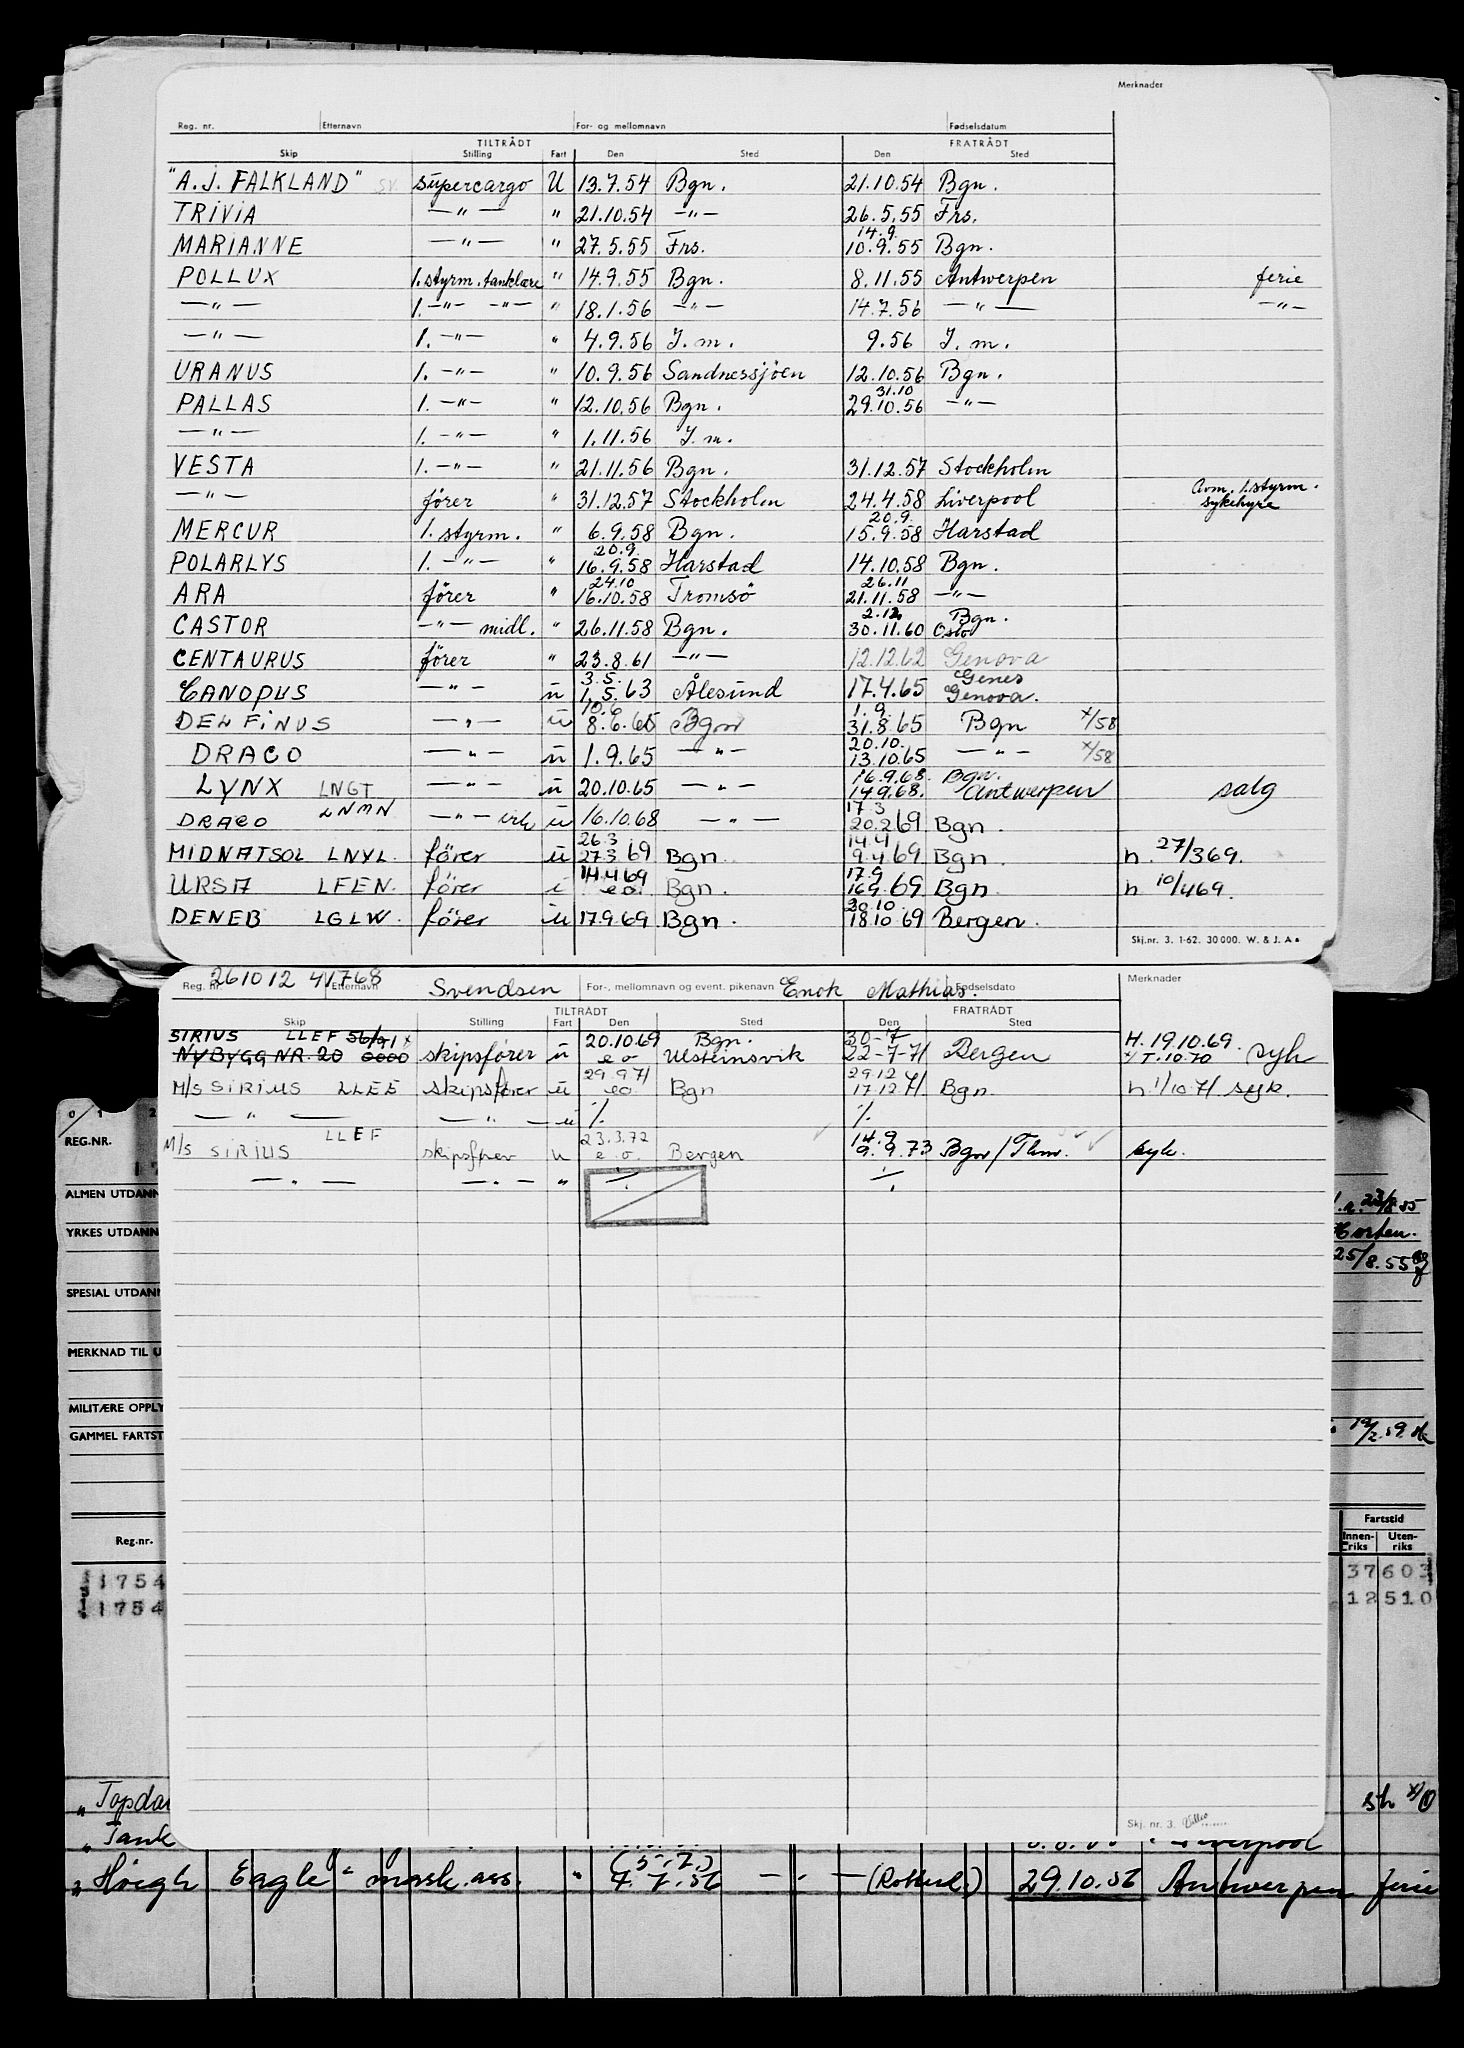 Merknader
Reg. nr. Etternavn For- og mellomnavn Fødselsdatum
TILTRÅDT FRATRÅDT
Skip Stilling Fart Den Sted Den Sted
"A.J. FALKLAND" sv supercargo U 13.7.54 Bgn. 21.10.54 Bgn.
TRIVIA —"— " 21.10.54 —"— 26.5.55 Frs.
14.9.
MARIANNE —"— " 27.5.55 Frs. 10.9.55 Bgn.
POLLUX 1.styrm.tanklære " 14.9.55 Bgn. 8.11.55 Antwerpen ferie
—"— 1.—"— —"— " 18.1.56 —"— 14.7.56 —"— —"—
—"— 1.—"— " 4.9.56 I.m. 9.56 I.m.
URANUS 1.—"— " 10.9.56 Sandnessjöen 12.10.56 Bgn.
31.10
PALLAS 1.—"— " 12.10.56 Bgn. 29.10.56 —"—
—"— 1.—"— " 1.11.56 I.m.
VESTA 1.—"— " 21.11.56 Bgn. 31.12.57 Stockholm
Avm. 1.styrm.
—"— förer " 31.12.57 Stockholm 24.4.58 Liverpool sykehyre
20.9.
MERCUR 1. styrm. " 6.9.58 Bgn. 15.9.58 Harstad
20.9.
POLARLYS 1.—"— " 16.9.58 Harstad 14.10.58 Bgn.
24.10 26.11
ARA förer " 16.10.58 Tromsö 21.11.58 —"—
2.12. Bgn.
CASTOR —"— midl. " 26.11.58 Bgn. 30.11.60 Oslo
CENTAURUS förer " 23.8.61 —"— 12.12.62 Genova
3.5. Genes
CANOPUS —"— u 1.5.63 Ålesund 17.4.65 Genova.
10.6 1.9.
DELFINUS —"— u 8.6.65 Bgn 31.8.65 Bgn x/58
20.10.
DRACO —"— u 1.9.65 —"— 13.10.65 —"— x/58
16.9.68. Bgn.
LYNX LNGT —"— u 20.10.65 —"— 14.9.68. Antwerpen salg
LNMN 17.3
DRACO —"— u 16.10.68 —"— 20.2.69 Bgn.
26.3 14.4
MIDNATSOL LNYL. förer u 27.3.69 Bgn. 9.4.69 Bgn. h. 27/369.
14.4.69 17.9
URSA LFEN. förer i eo. Bgn. 16.9.69 Bgn. h 10/469.
20.10
DENEB LGLW. förer u 17.9.69 Bgn. 18.10.69 Bergen.
Skj.nr. 3. 1-62. 30 000. W. & J. A s
261012 41768
Reg. nr. Etternavn Svendsen For-, mellomnavn og event. pikenavn Enok Mathias. Fødselsdato Merknader
TILTRÅDT FRATRÅDT
Skip Stilling Fart Den Sted Den Sted
SIRIUS LLEF 20.10.69 Bgn. 30-7 H. 19.10.69.
NYBYGG NR. 20 0000 skipsfører u e o Ulsteinsvik 22-7-71 Bergen 7.10.70 syk
29.9.71 29.12
M/S SIRIUS LLEF skipsfører u eo Bgn 17.12.71 Bgn. h. 1/10.71 syk.
—"— —"— u ./. ./.
LLEF 23.3.72 14.9
M/S SIRIUS skipsfører u e.o. Bergen 9.9.73 Bgn/Thm. syk.
—"— —"— " ./. ./.
Skj. nr. 3.
0 1 2
REG.NR.
ALMEN UTDANN
YRKES UTDANN
SPESIAL UTDANN
MERKNAD TIL U
MILITÆRE OPPLY
GAMMEL FARTST
Horten.
25/8.55
Reg.nr. Fartstid
Innenriks Utenriks
1754 37603
1754 12510
" Topda
" Tank Liverpool
(5.7.)
" Höegh Eagle " mask.ass. " 4.7.56 —"— (Rotterd.) 29.10.56 Antwerpen ferie